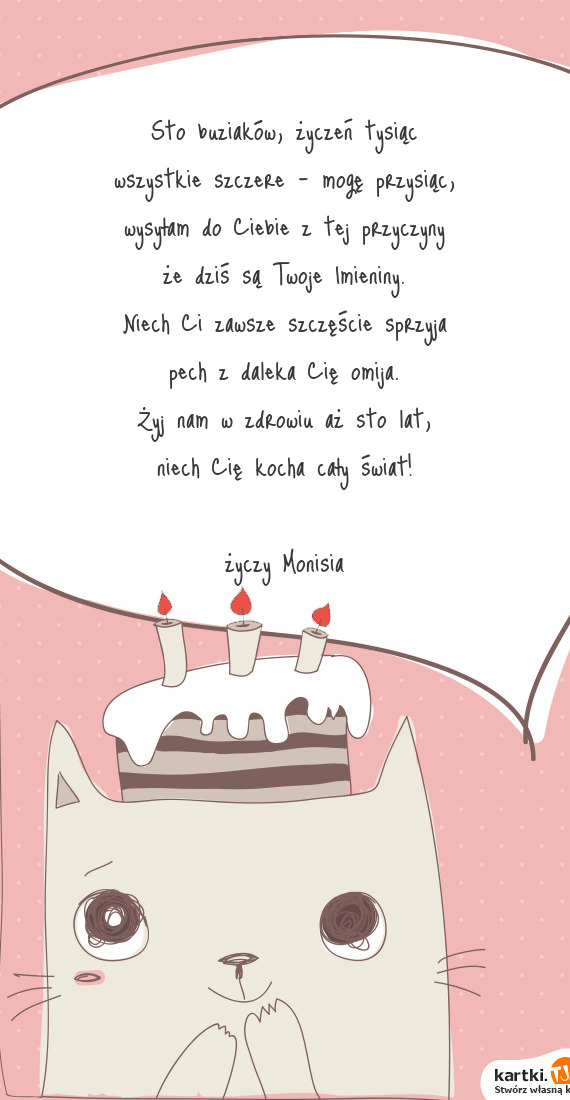 Sto buziaków, życzeń tysiąc
wszystkie szczere - mogę przysiąc,
wysyłam do Ciebie z tej przyczyny
że dziś są Twoje Imieniny.
Niech Ci zawsze szczęście sprzyja
pech z daleka Cię omija.
Żyj nam w zdrowiu aż sto lat,
niech Cię kocha cały świat!
życzy Monisia
kartki.TJ
Stwórz własną k